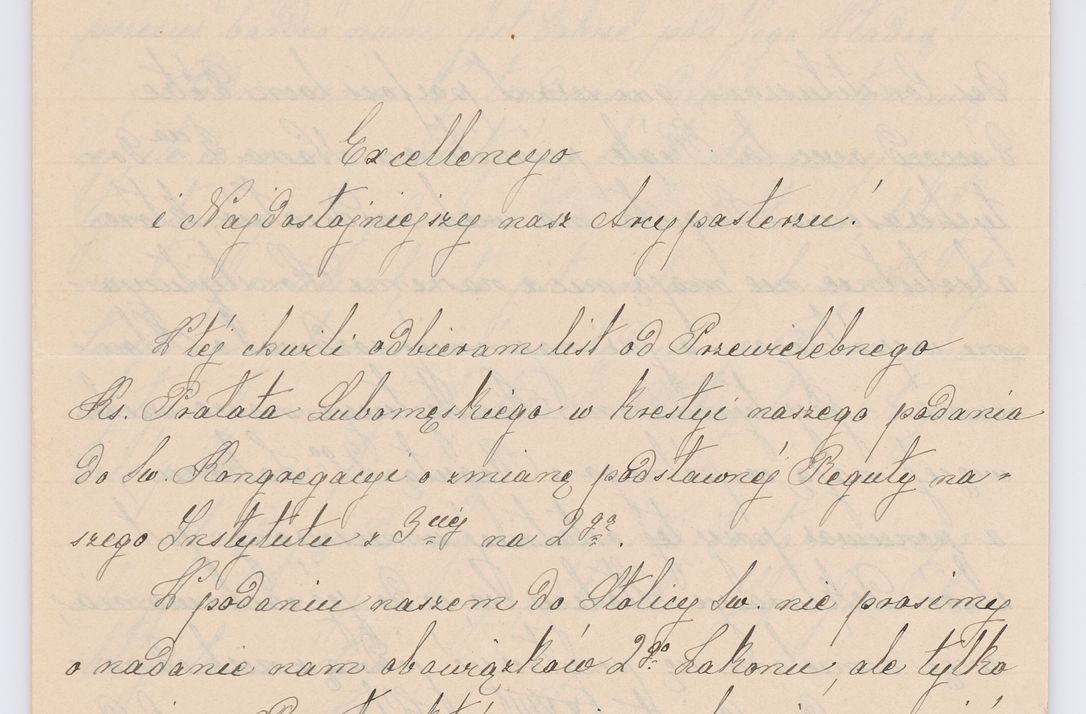 Excellencyo
i Najdostojniejszy nasz Arcypasterzu!
W tej chwili odbieram list od Przewielebnego
Ks. Prałata Lubomęskiego w kwestyi naszego podania
do Św. Kongregacyi o zmianę podstawnéj Reguły na-
szego Instytutu z 3ciéj na 2gą.
W podaniu naszem do Stolicy Św. nie prosimy
o nadanie nam obowiązków 2go Zakonu, ale tylko